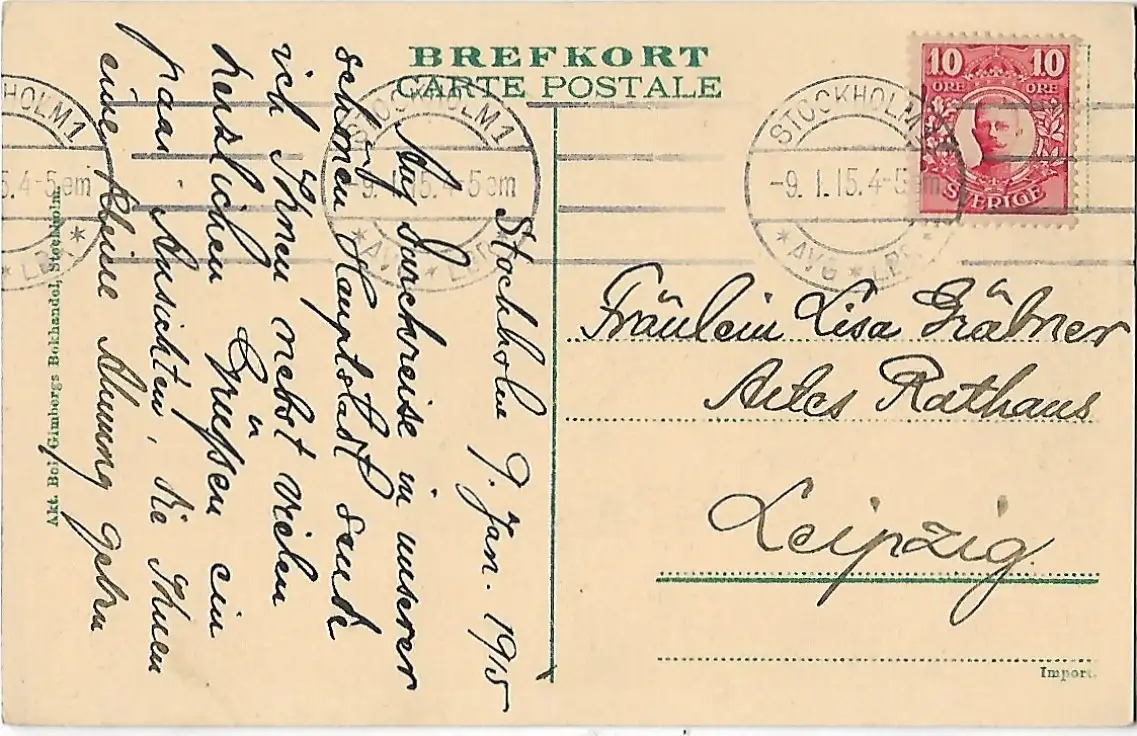 BREFKORT
CARTE POSTALE
10 10
ÖRE ÖRE
SVERIGE
STOCKHOLM 1
-9.1.15.4-5em
* AVG * LBR. *
STOCKHOLM 1
-9.1.15.4-5em
* AVG * LBR. *
HOLM 1
5.4-5em
* LBR. *
Stockholm 9. Jan. 1915
Auf Durchreise in unserer
schönen Hauptstadt sende
ich Ihnen nebst vielen
herzlichen Grüßen ein
paar Ansichten, die Ihnen
eine kleine Ahnung geben
Fräulein Lisa Gräbner
Altes Rathaus
Leipzig
Import.
Akt. Bol. Gimbergs Bokhandel, Stockholm.